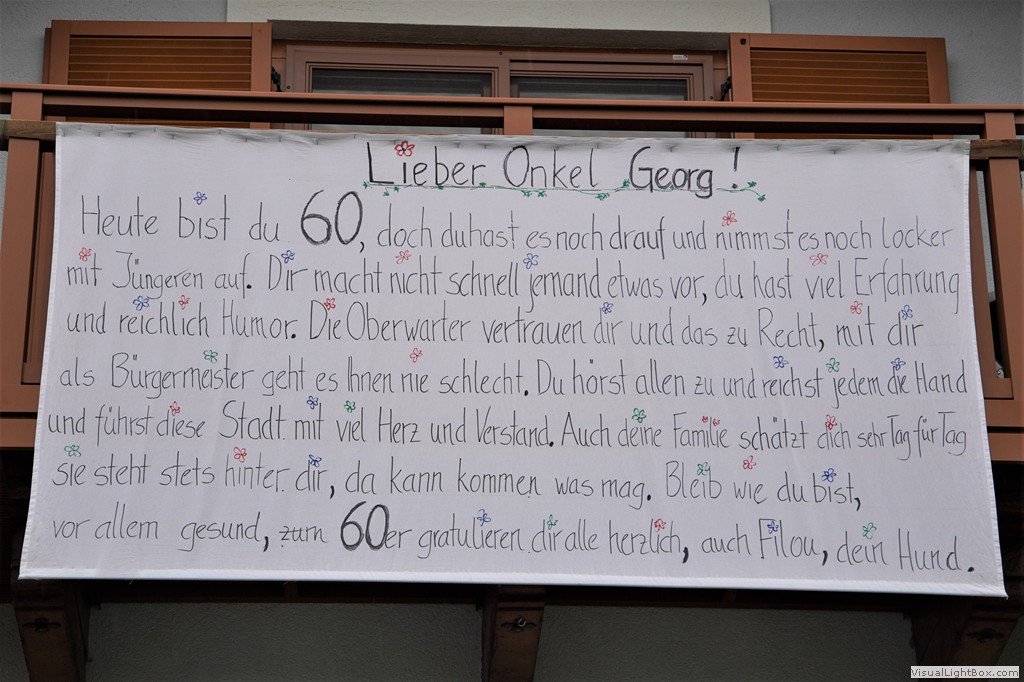 Lieber Onkel Georg!
Heute bist du 60, doch du hast es noch drauf und nimmst es noch locker
mit Jüngeren auf. Dir macht nicht schnell jemand etwas vor, du hast viel Erfahrung
und reichlich Humor. Die Oberwarter vertrauen dir und das zu Recht, mit dir
als Bürgermeister geht es Ihnen nie schlecht. Du hörst allen zu und reichst jedem die Hand
und führst diese Stadt mit viel Herz und Verstand. Auch deine Familie schätzt dich sehr Tag für Tag
sie steht stets hinter dir, da kann kommen was mag. Bleib wie du bist,
vor allem gesund, zum 60er gratulieren dir alle herzlich, auch Filou, dein Hund.
VisualLightBox.com